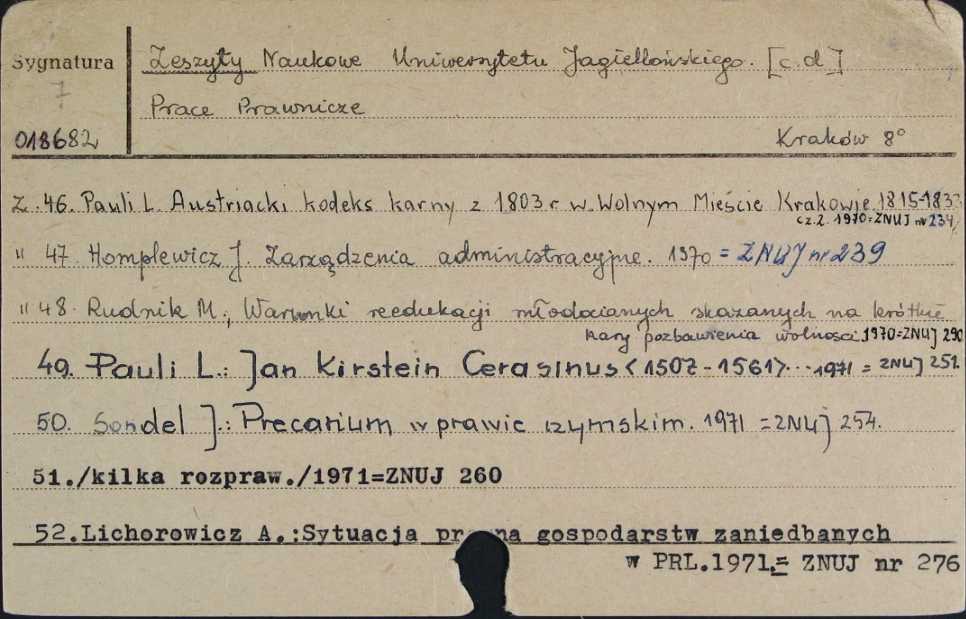 Sygnatura
7
018682
Zeszyty Naukowe Uniwersytetu Jagiellońskiego. [c.d]
Prace Prawnicze
Kraków 8°
Z. 46. Pauli L. Austriacki kodeks karny z 1803 r w Wolnym Mieście Krakowie 1815-1833
cz. 2. 1970=ZNUJ nr 234,
" 47. Homplewicz J. Zarządzenia administracyjne. 1970 = ZNUJ nr 239
" 48. Rudnik M., Warunki reedukacji młodocianych skazanych na krótkie
kary pozbawienia wolności 1970=ZNUJ 290
49. Pauli L.: Jan Kirstein Cerasinus <1507-1561>... 1971 = ZNUJ 252
50. Sondel J.: Precarium w prawie rzymskim. 1971 = ZNUJ 254.
51./kilka rozpraw./1971=ZNUJ 260
52.Lichorowicz A.:Sytuacja pr na gospodarstw zaniedbanych
w PRL.1971.= ZNUJ nr 276